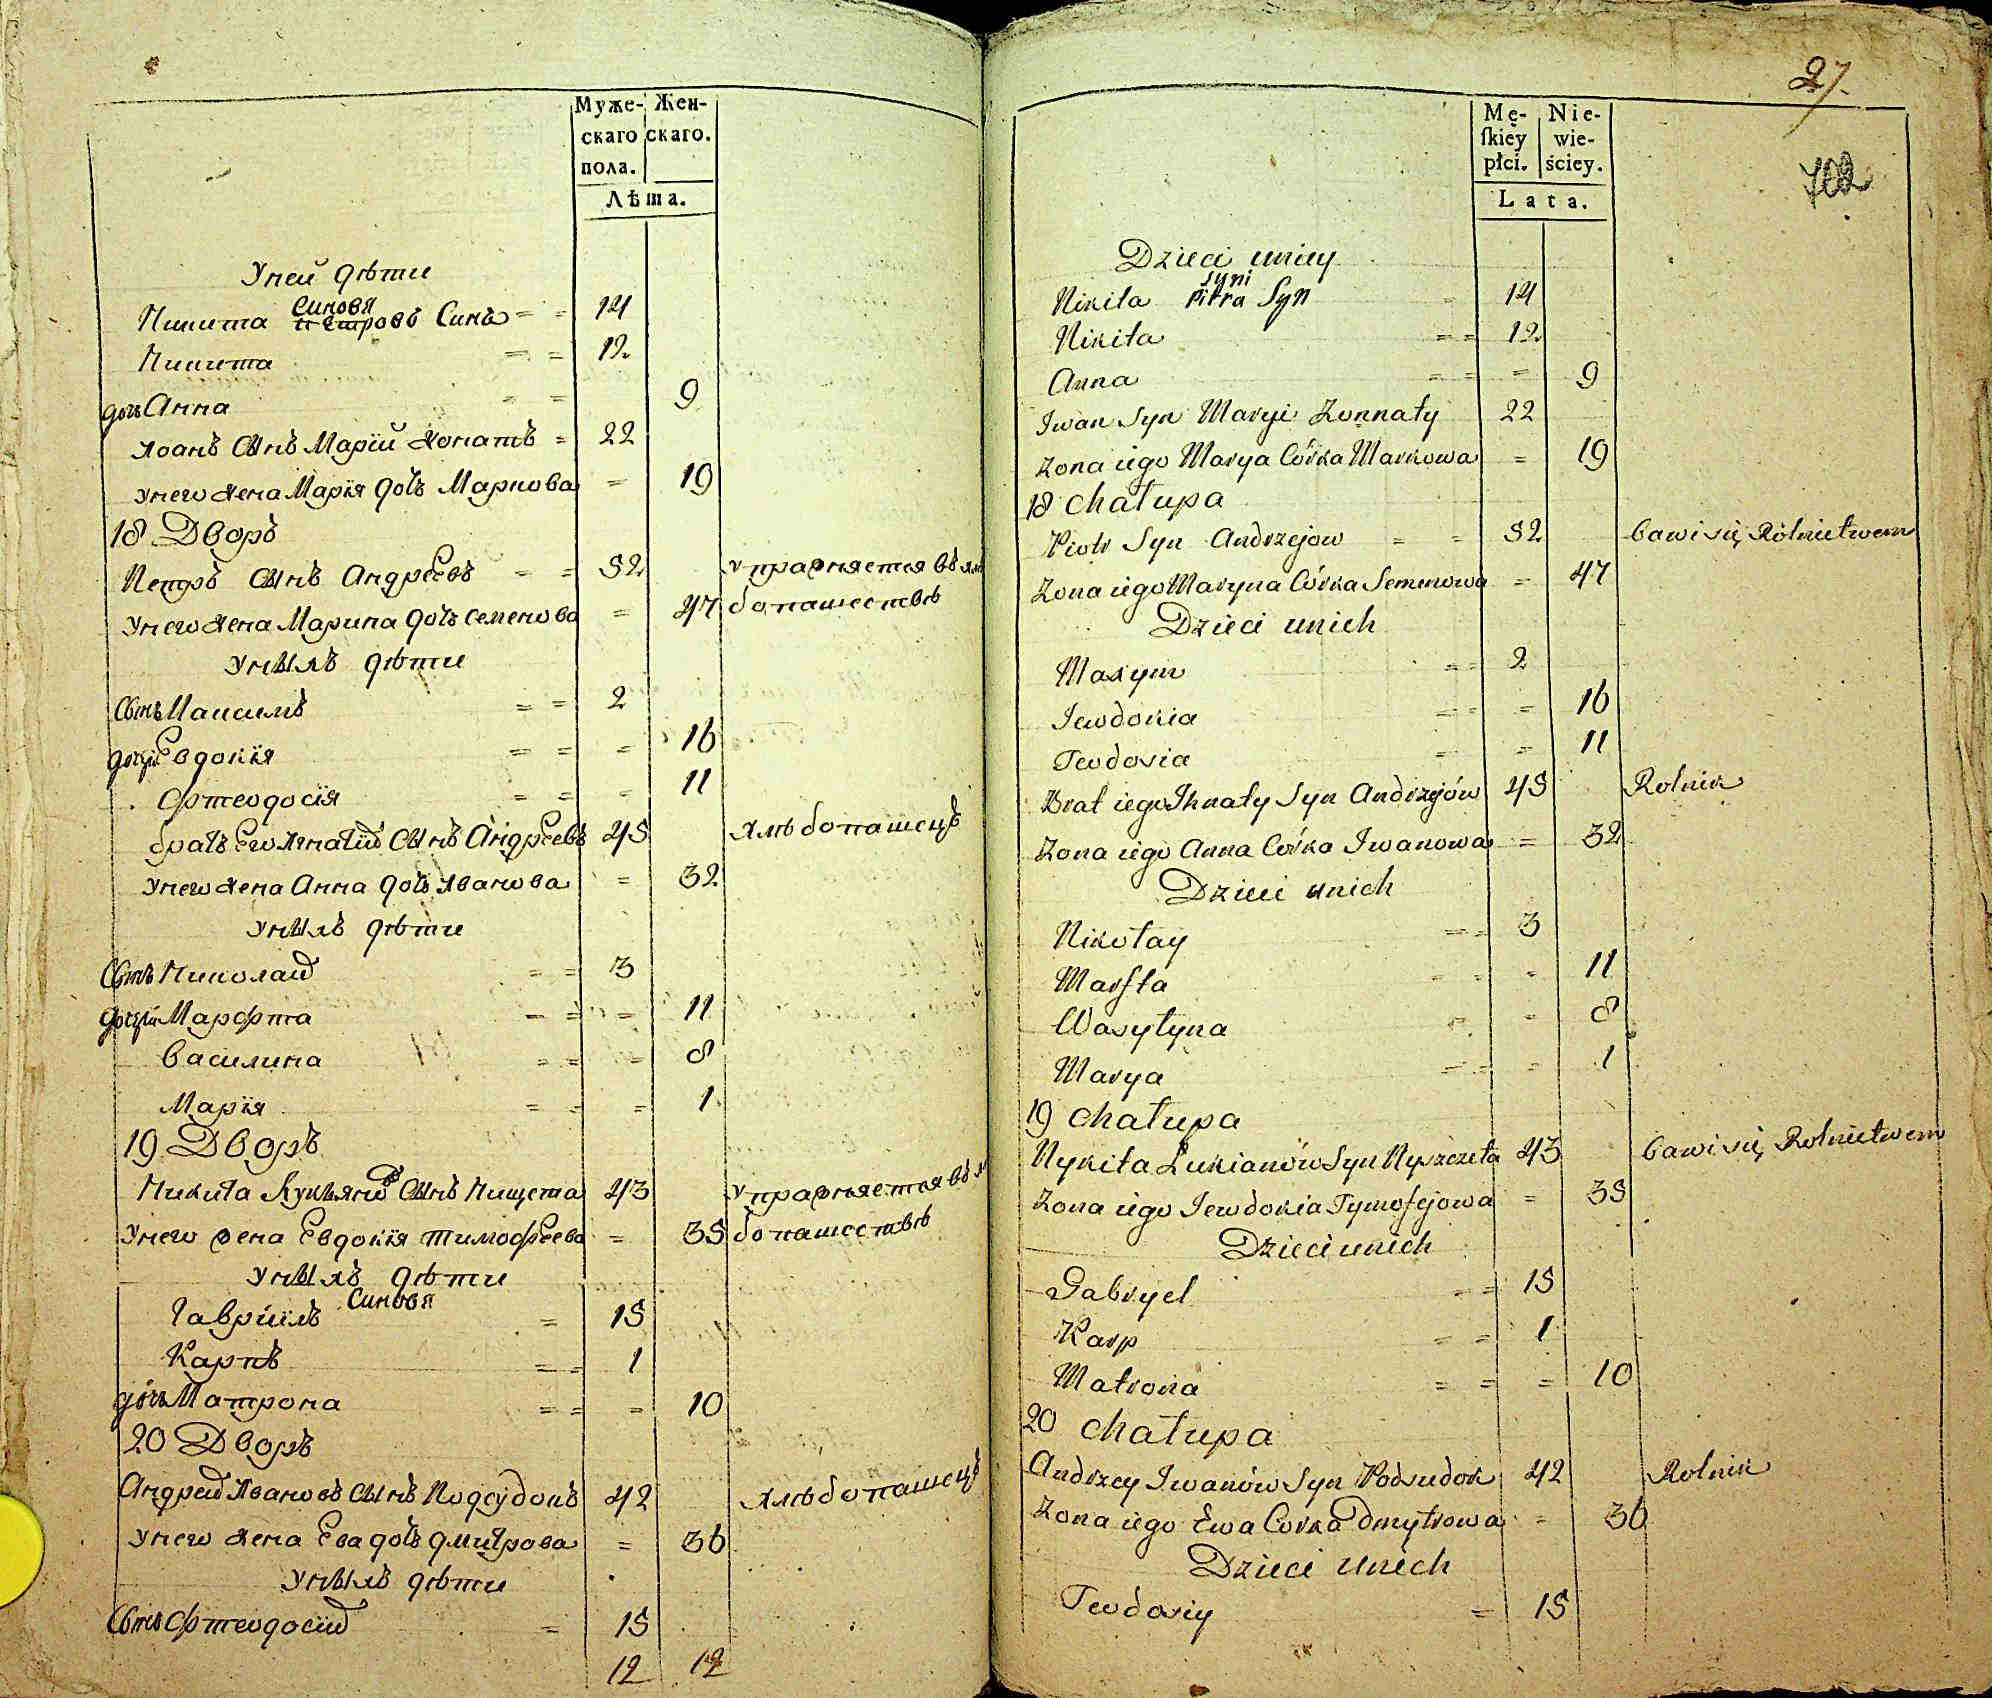 Муже- Жен-
скаго скаго.
пола.
Лѣта.
Уней дѣти
синовя
Никита петровъ Синъ = = 14
Никита = = 12
дочъ Анна = = 9
Іоанъ Сынъ Марїй Жонатъ = 22
Унего жена Марїя дочъ Маркова = 19
18 Дворъ
Петръ Сынъ Андреевъ = = 52 упражняется въ хлѣ
Унего жена Марина дочъ семенова = 47 бопашествѣ
Унихъ дѣти
Сынъ Максимъ = = 2
дочери Евдокїя = = = 16
Фтеодосїя = = = 11
братъ Его Игнатїй Сынъ Андреевъ 45 Хлѣбопашецъ
Унего жена Анна дочъ Иванова = 32
Унихъ дѣти
Сынъ Николай = = 3
дочери Марфта = = = 11
Василина = = = 8
Марїя = = = 1
19 Дворъ
Никита Лукьяновъ Сынъ Нищета 43 упражняется въ х
Унего жена Евдокїя Тимофеева = 35 бопашествѣ
Унихъ дѣти
Гаврїилъ Синовя = 15
Карпъ = = 1
дочъ Матрона = = = 10
20 Дворъ
Андрей Ивановъ Сынъ Подсудокъ 42 Хлѣбопашецъ
Унего жена Ева дочъ дмитрова = 36
Унихъ дѣти
Сынъ Фтеодосїй = 15
12 12
27.
702
Mę- Nie-
ſkiey wie-
płci. ściey.
Lata.
Dzieci uniey
syni
Nikita Pitra Syn = 14
Nikita = = 12
Anna = = = 9
Iwan Syn Maryi Żonnaty 22
Żona iego Marya Córka Markowa = 19
18 Chałupa
Piotr Syn Andrzejow = = 52 bawi się Rolnictwem
Żona iego Maryna Córka Semenowa = 47
Dzieci unich
Maxym = = 2
Jewdokia = = = 16
Teodosia = = 11
Brat iego Ihnaty Syn Andrzejów 45 Rolnik
Żona iego Anna Córka Iwanowa = 32
Dzieci unich
Nikołay = = 3
Marfta = = = 11
Wasyłyna = = 8
Marya = = = 1
19 Chałupa
Nykita Łukianów Syn Nyszczeta 43 bawi się Rolnictwem
Żona iego Jewdokia Tymofejowa = 35
Dzieci unich
Gabryel = = 15
Karp = = 1
Matrona = = = 10
20 Chałupa
Andrzey Iwanów Syn Podsudok 42 Rolnik
Żona iego Ewa Corka Dmytrowa = 36
Dzieci unich
Teodosiy = 15